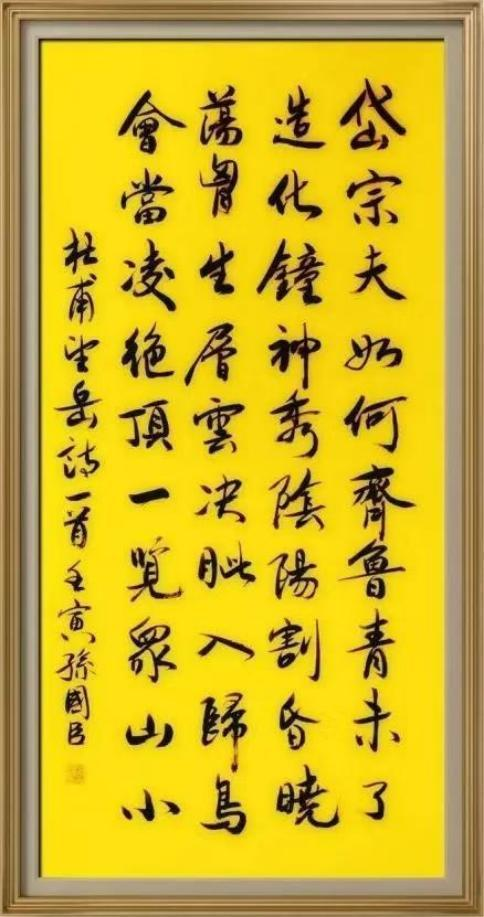 岱宗夫如何齊魯青未了
造化鐘神秀陰陽割昏曉
蕩胷生層雲决眦入歸鳥
會當凌絶頂一覽衆山小
杜甫望岳詩一首壬寅孫國臣